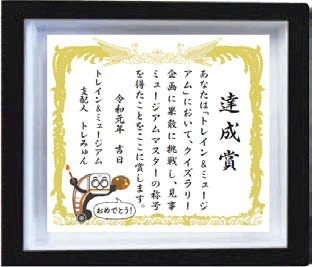 達成賞
あなたは「トレイン&ミュージ
アム」において、クイズラリー
企画に果敢に挑戦し、見事
ミュージアムマスターの称号
を得たことをここに賞します。
令和元年 吉日
トレイン&ミュージアム
支配人 トレみゅん
おめでとう!